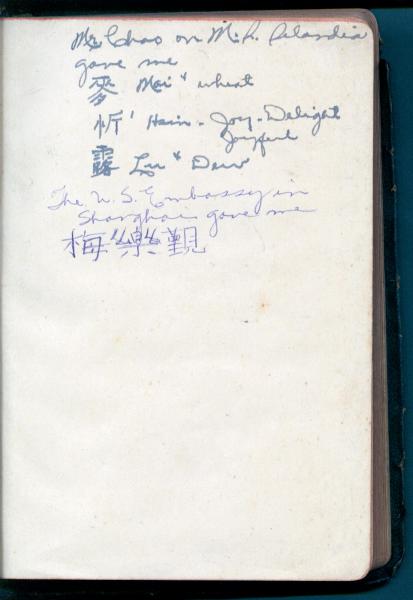 Mr Chao on M.S. Selandia
gave me
麥 Mai⁴ wheat
忻¹ Hsin - Joy - Delight
Joyful
露 Lu⁴ Dew
The U. S. Embassy in
Shanghai gave me
梅樂覲